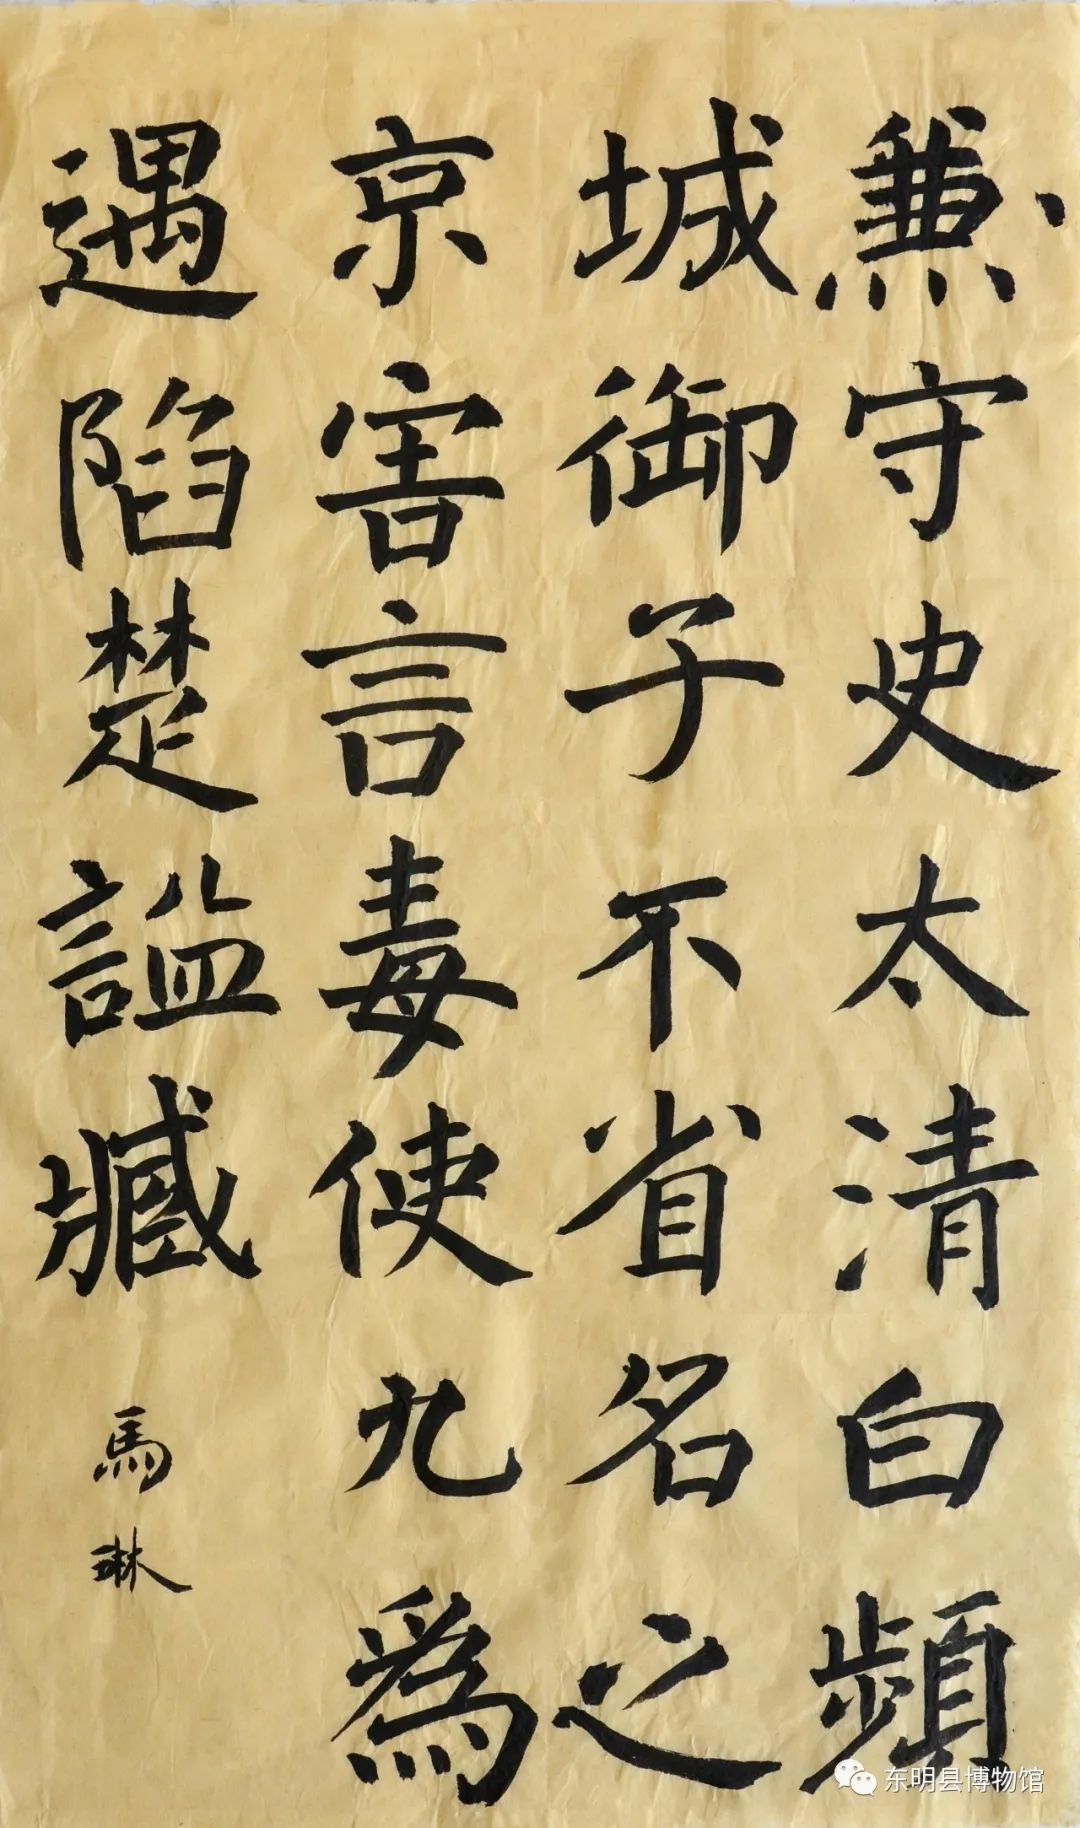 兼守史太清白頻
城御子不省名之
京害言毒使九爲
遇陷楚謚臧
馬琳
东明县博物馆